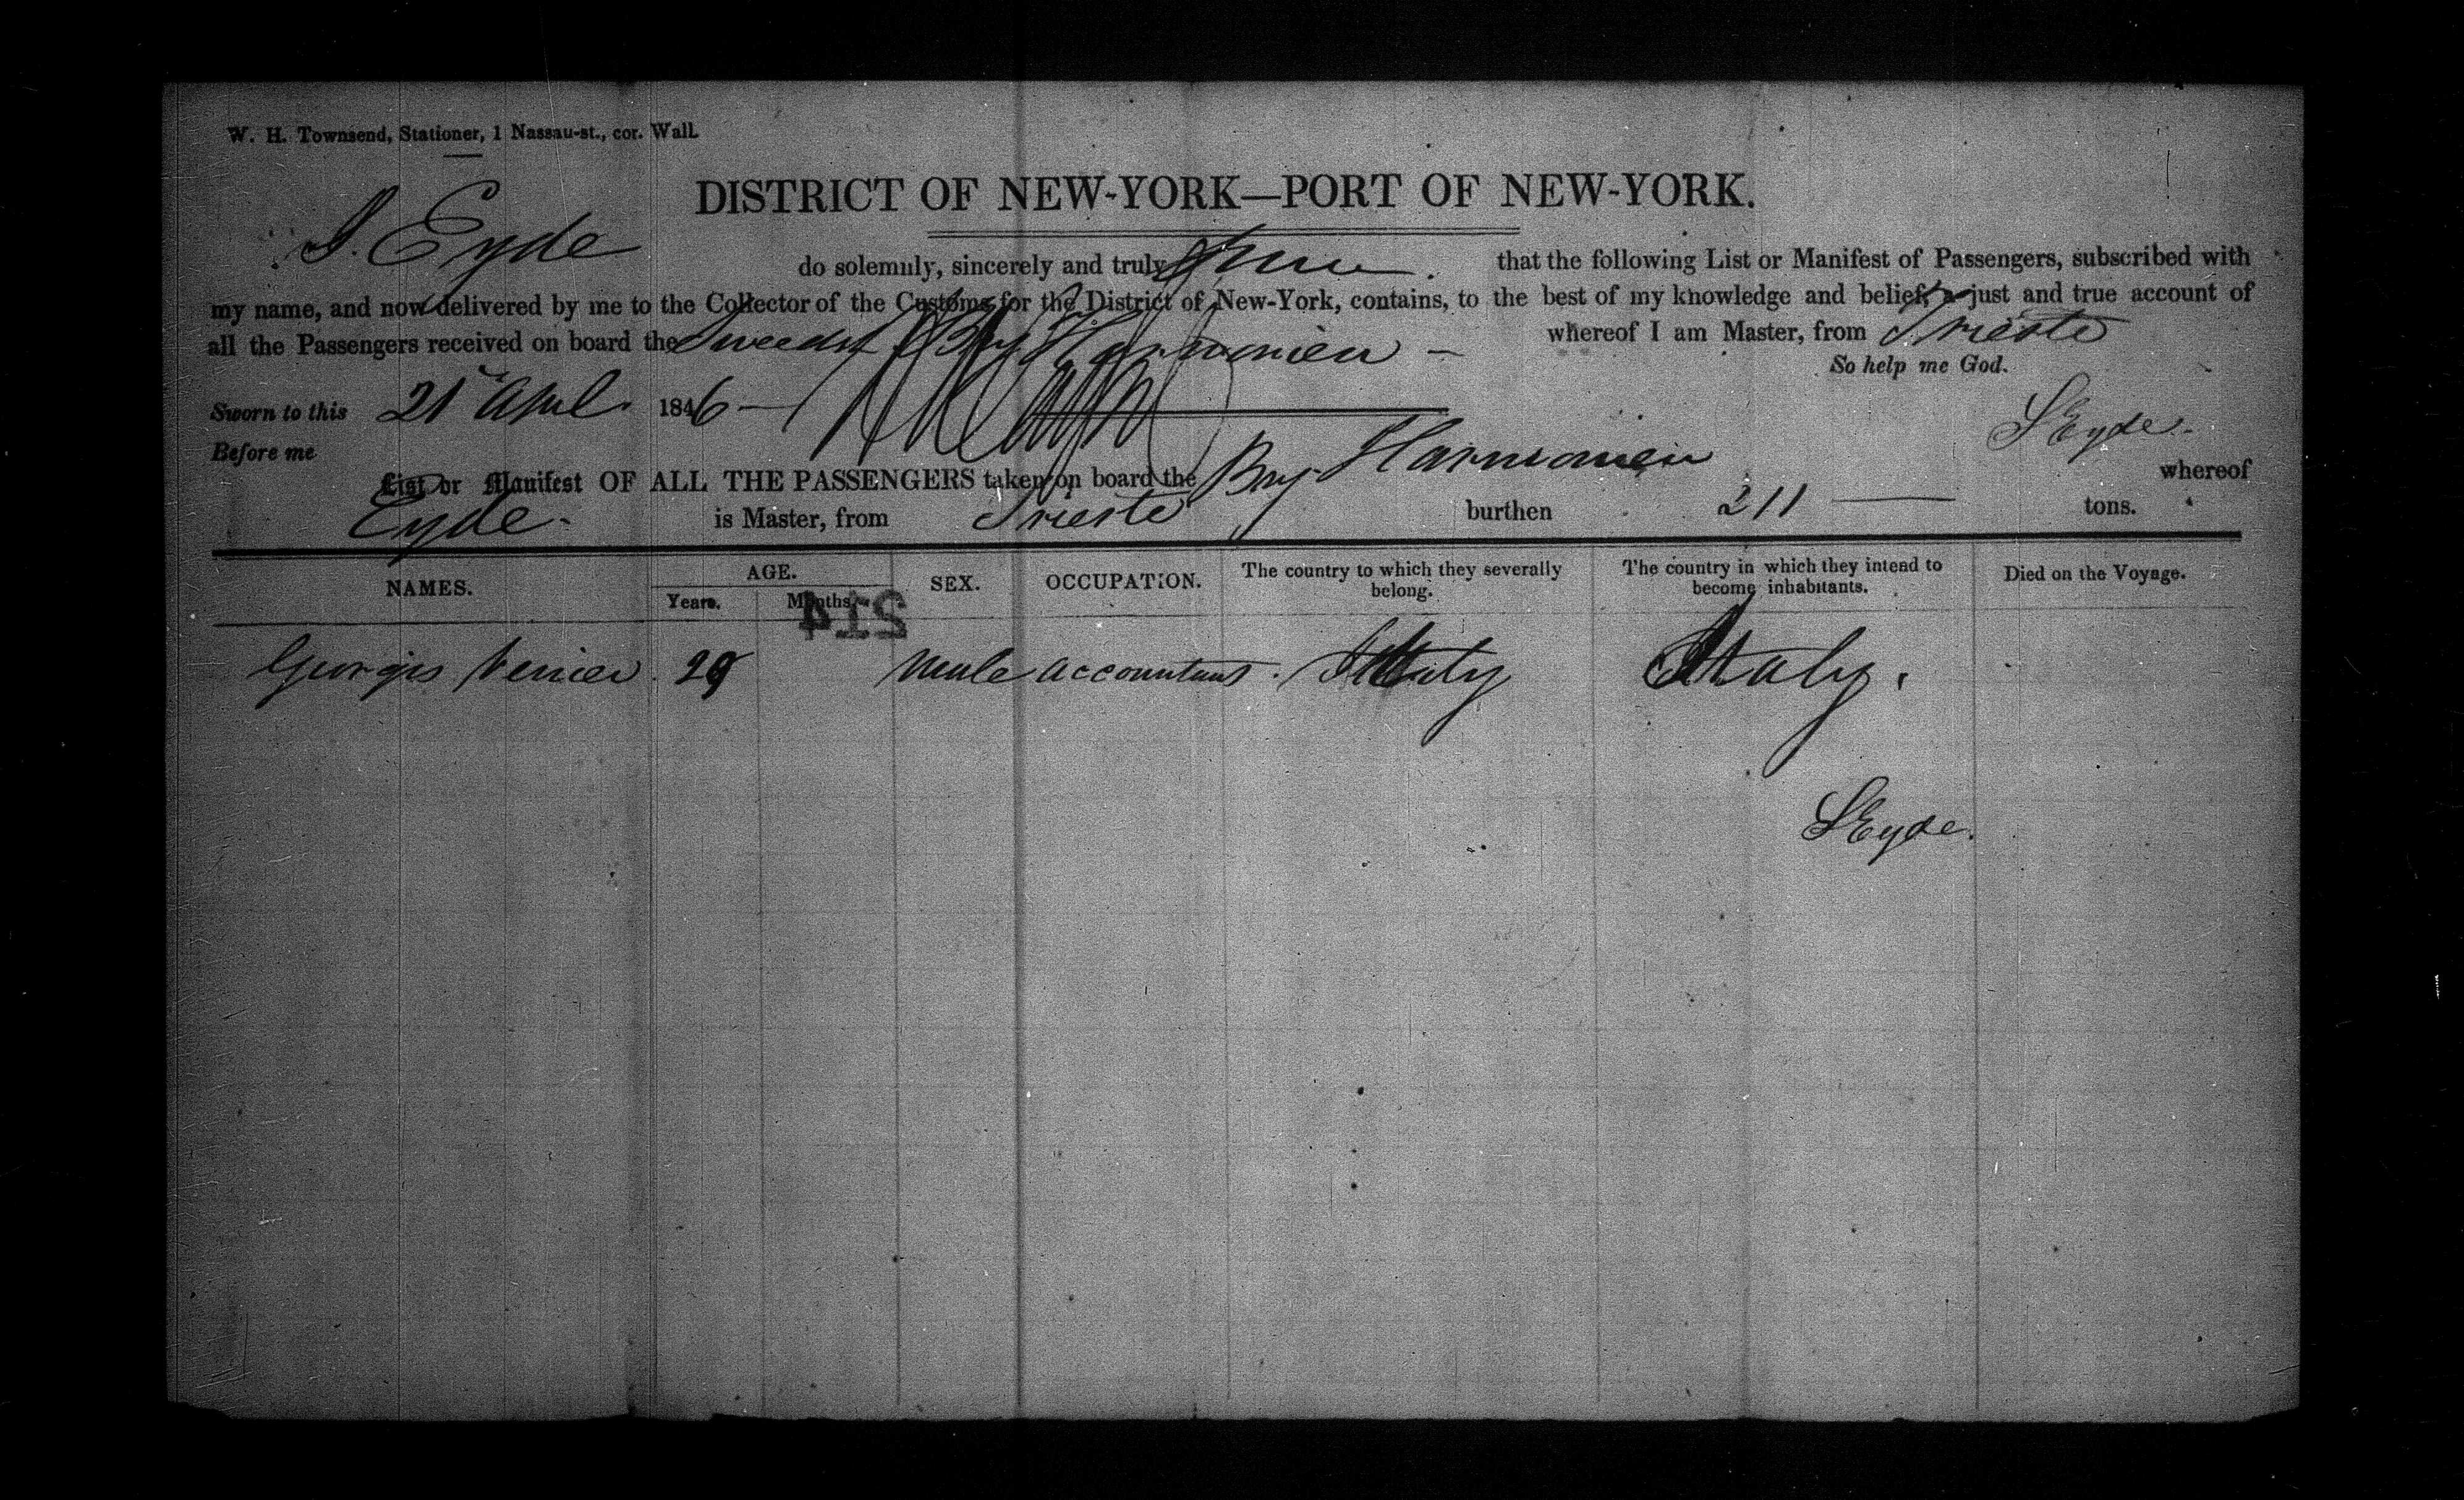 W. H. Townsend, Stationer, 1 Nassau-st., cor. Wall.
DISTRICT OF NEW-YORK—PORT OF NEW-YORK.
S. Eyde do solemnly, sincerely and truly that the following List or Manifest of Passengers, subscribed with
my name, and now delivered by me to the Collector of the Customs for the District of New-York, contains, to the best of my knowledge and belief, a just and true account of
all the Passengers received on board the Swedish Brig Harmonien — whereof I am Master, from Trieste
So help me God.
Sworn to this 21 April 1846 —
S Eyde.
Before me
List or Manifest OF ALL THE PASSENGERS taken on board the Brig Harmonien whereof
Eyde. is Master, from Trieste burthen 211 — tons.
NAMES. AGE. SEX. OCCUPATION. The country to which they severally belong. The country in which they intend to become inhabitants. Died on the Voyage.
Years. Months.
214
29 Male Accountant. Italy Italy.
S Eyde.